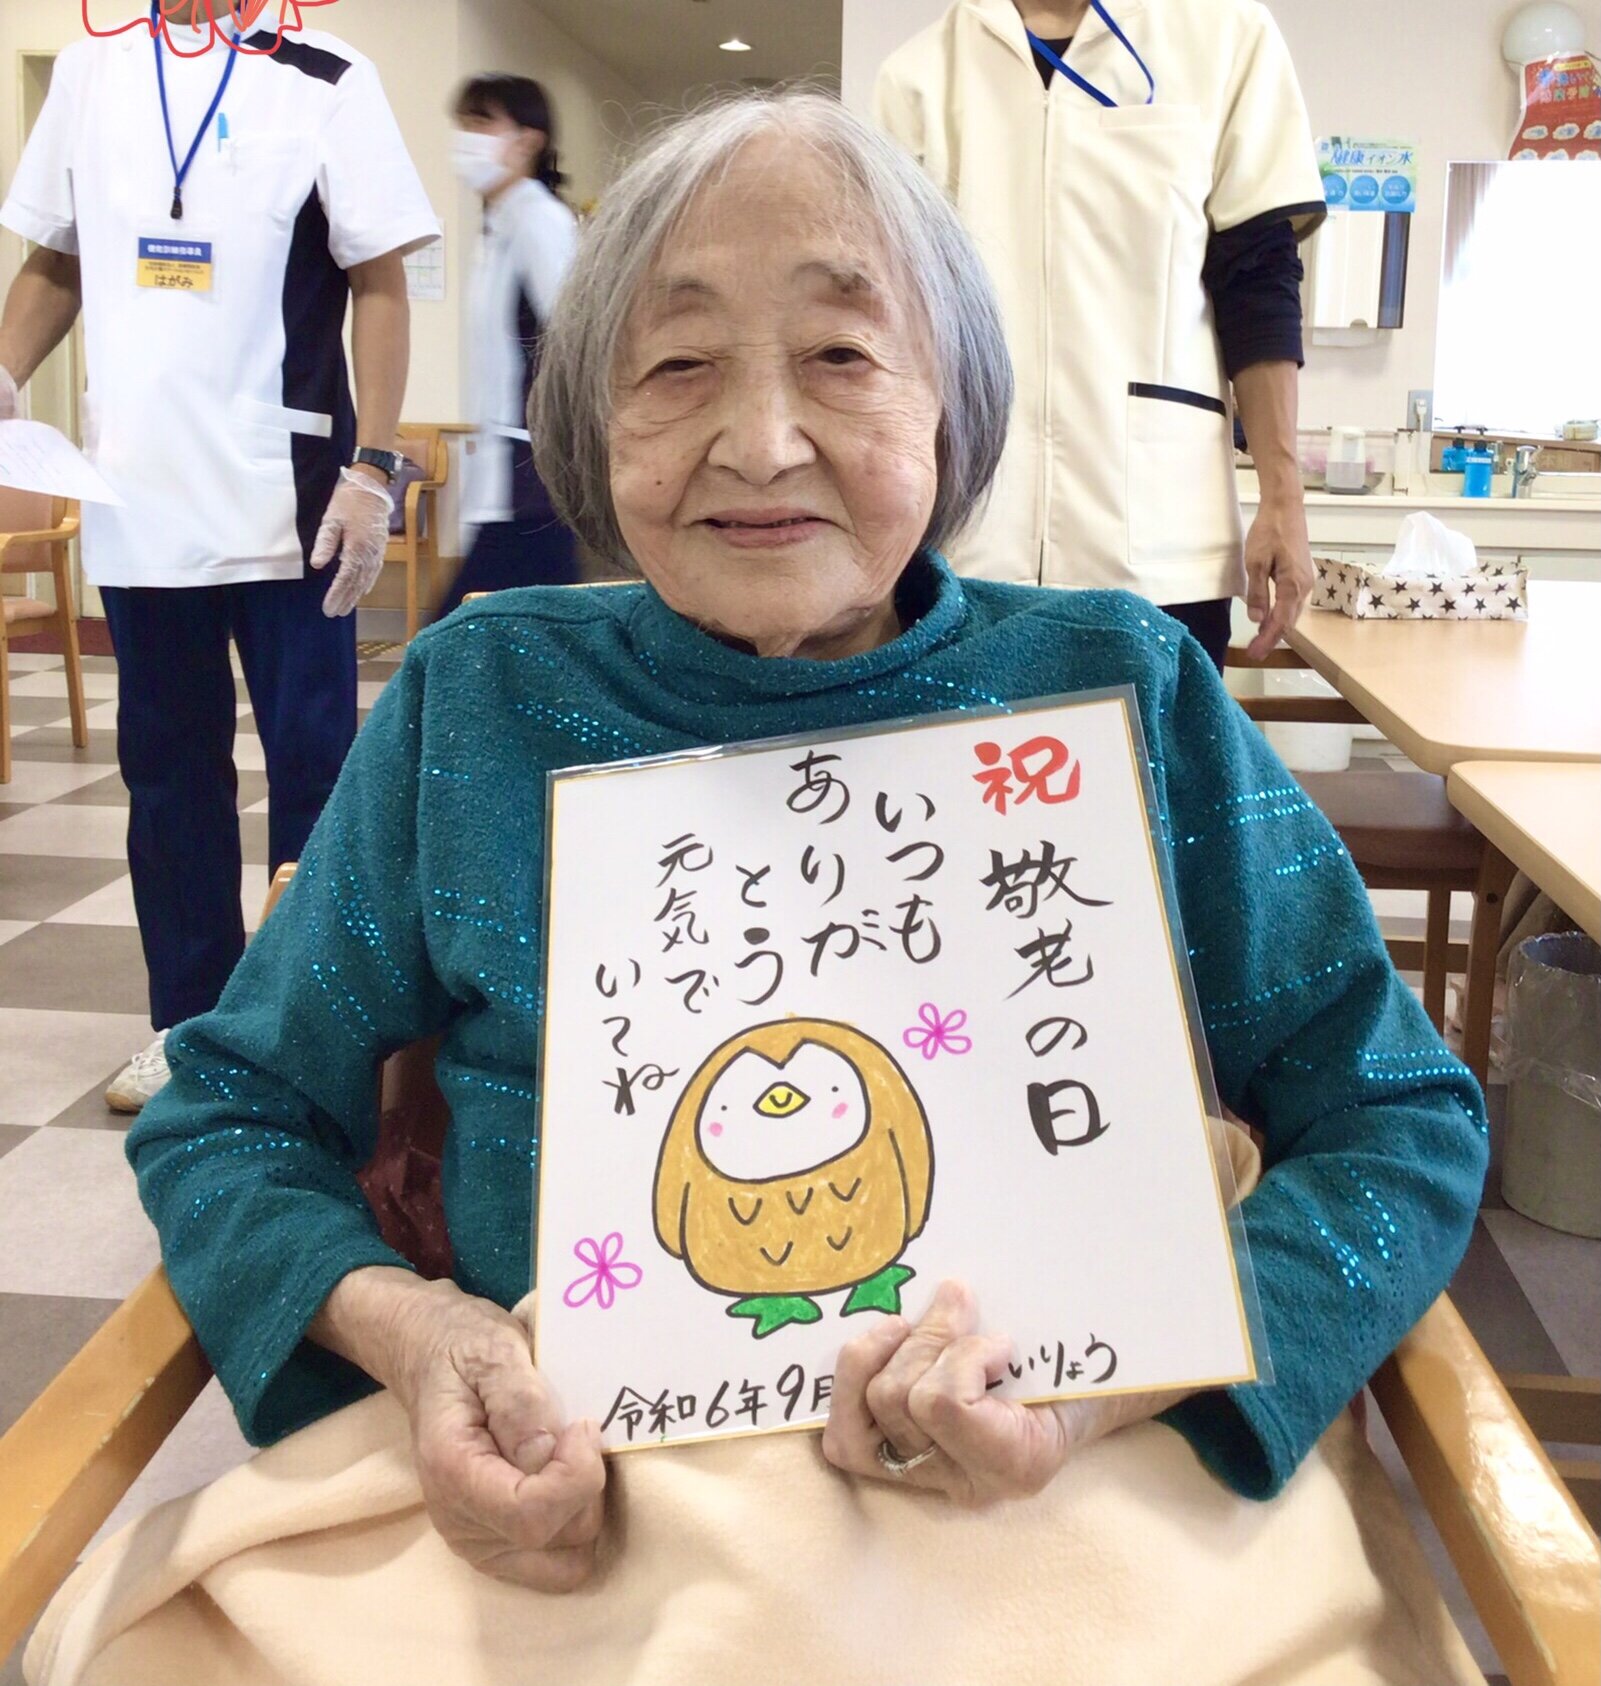 祝 敬老の日
いつも
ありが
とう
元気で
いてね
令和6年9月
いりょう
機能訓練指導員
はがみ
健康イオン水